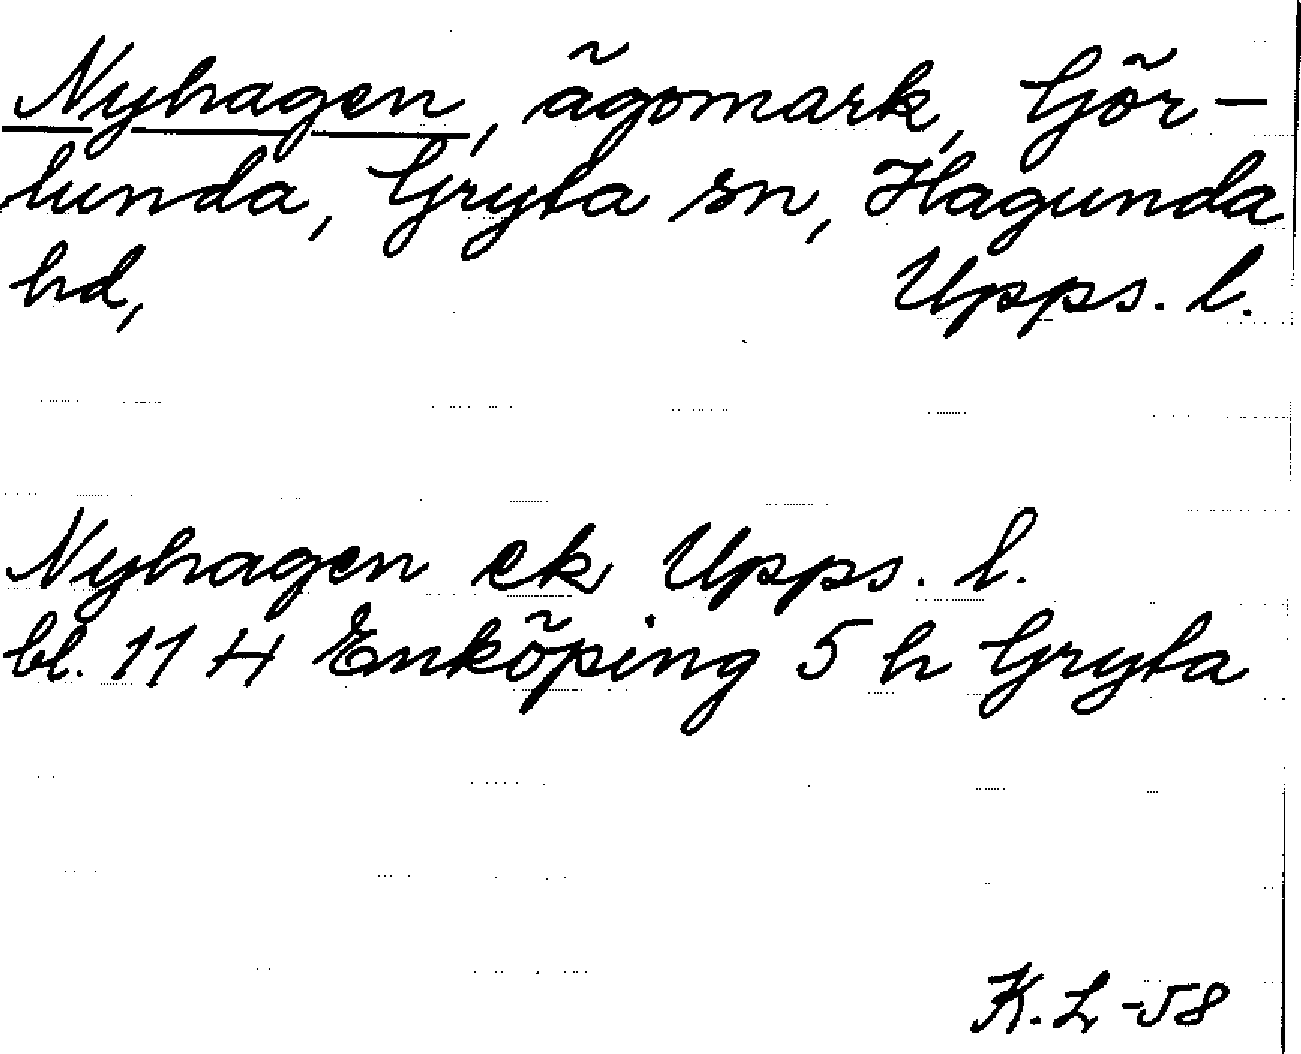 Nyhagen, ägomark, Gör-
lunda, Gryta sn, Hagunda
hd, Upps. l.
Nyhagen ek Upps. l.
bl. 11 H Enköping 5 h Gryta
K. L -58